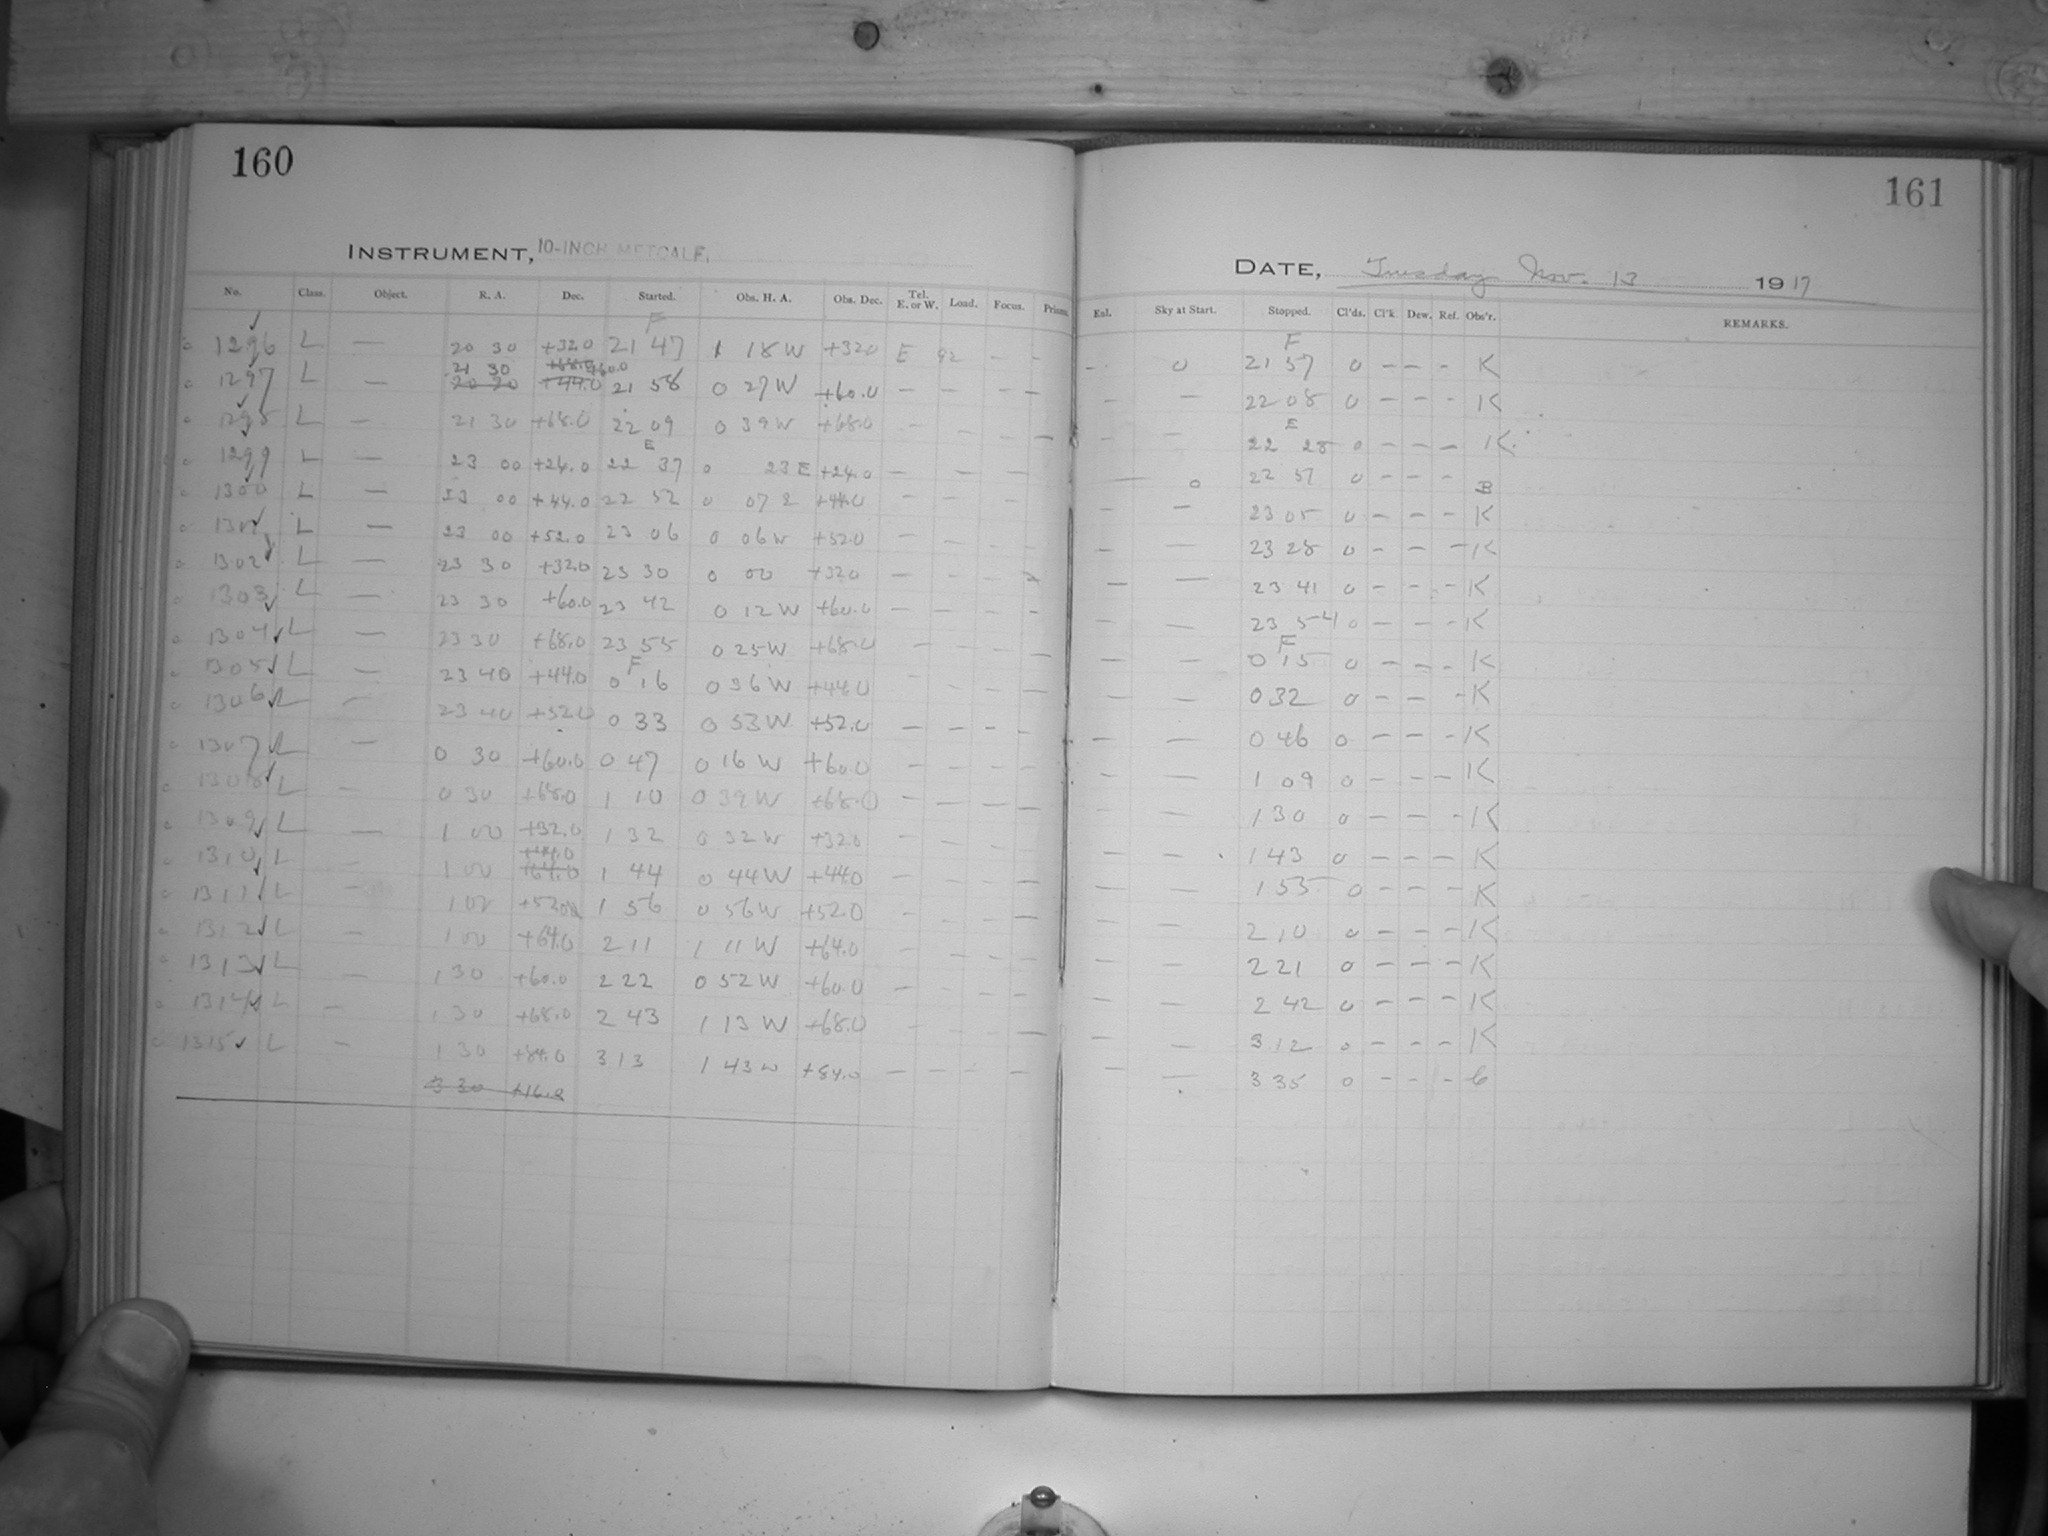 160
161
INSTRUMENT, 10-INCH METCALF.
DATE, Tuesday Nov. 13 1917
No. Class. Object. R. A. Dec. Started. Obs. H. A. Obs. Dec. Tel. E. or W. Load. Focus. Prism. Enl. Sky at Start. Stopped. Cl'ds. Cl'k Dew. Ref. Obs'r. REMARKS.
F F
1296 L — 20 30 +32.0 21 47 1 18 W +32.0 E 92 — — — 0 21 57 0 — — - K
21 30 +68.0 +60.0
1297 L — 20 20 +44.0 21 58 0 27 W +60.0 — — — — — — 22 08 0 — — - K
1298 L — 21 30 +68.0 22 09 0 39 W +68.0 — — — — — — 22 28 0 — — — K.
E E
1299 L — 23 00 +24.0 22 37 0 23 E +24.0 — — — — 0 22 51 0 — — - B
1300 L — 23 00 +44.0 22 52 0 07 E +44.0 — — — — — 23 05 0 — — — K
1301 L — 23 00 +52.0 23 06 0 06 W +52.0 — — — — — — 23 28 0 - — — K
1302 L — 23 30 +32.0 23 30 0 00 +32.0 — — — — — — 23 41 0 — — - K
1303 L — 23 30 +60.0 23 42 0 12 W +60.0 — — — — — — 23 54 0 — — - K
F
1304 L — 23 30 +68.0 23 55 0 25 W +68.0 — — — — — — 0 15 0 — — - K
F
1305 L — 23 40 +44.0 0 16 0 36 W +44.0 — — — — — — 0 32 0 — — - K
1306 L — 23 40 +52.0 0 33 0 53 W +52.0 — — — — — — 0 46 0 — — - K
1307 L — 0 30 +60.0 0 47 0 16 W +60.0 — — — — — — 1 09 0 - — — K
1308 L — 0 30 +68.0 1 10 0 39 W +68.0 — — — — — — 1 30 0 — — - K
1309 L — 1 00 +32.0 1 32 0 32 W +32.0 — — — — — — 1 43 0 — — — K
+44.0
1310 L — 1 00 +64.0 1 44 0 44 W +44.0 — — — — — — 1 55 0 — — - K
1311 L — 1 00 +52.0 1 56 0 56 W +52.0 — — — — — — 2 10 0 — — - K
1312 L — 1 00 +64.0 2 11 1 11 W +64.0 — — — — — — 2 21 0 — — - K
1313 L — 1 30 +60.0 2 22 0 52 W +60.0 — — — — — — 2 42 0 — — - K
1314 L — 1 30 +68.0 2 43 1 13 W +68.0 — — — — — — 3 12 0 — - - K
1315 L — 1 30 +84.0 3 13 1 43 W +84.0 — — — — — — 3 35 0 — - - C
3 30 +16.0